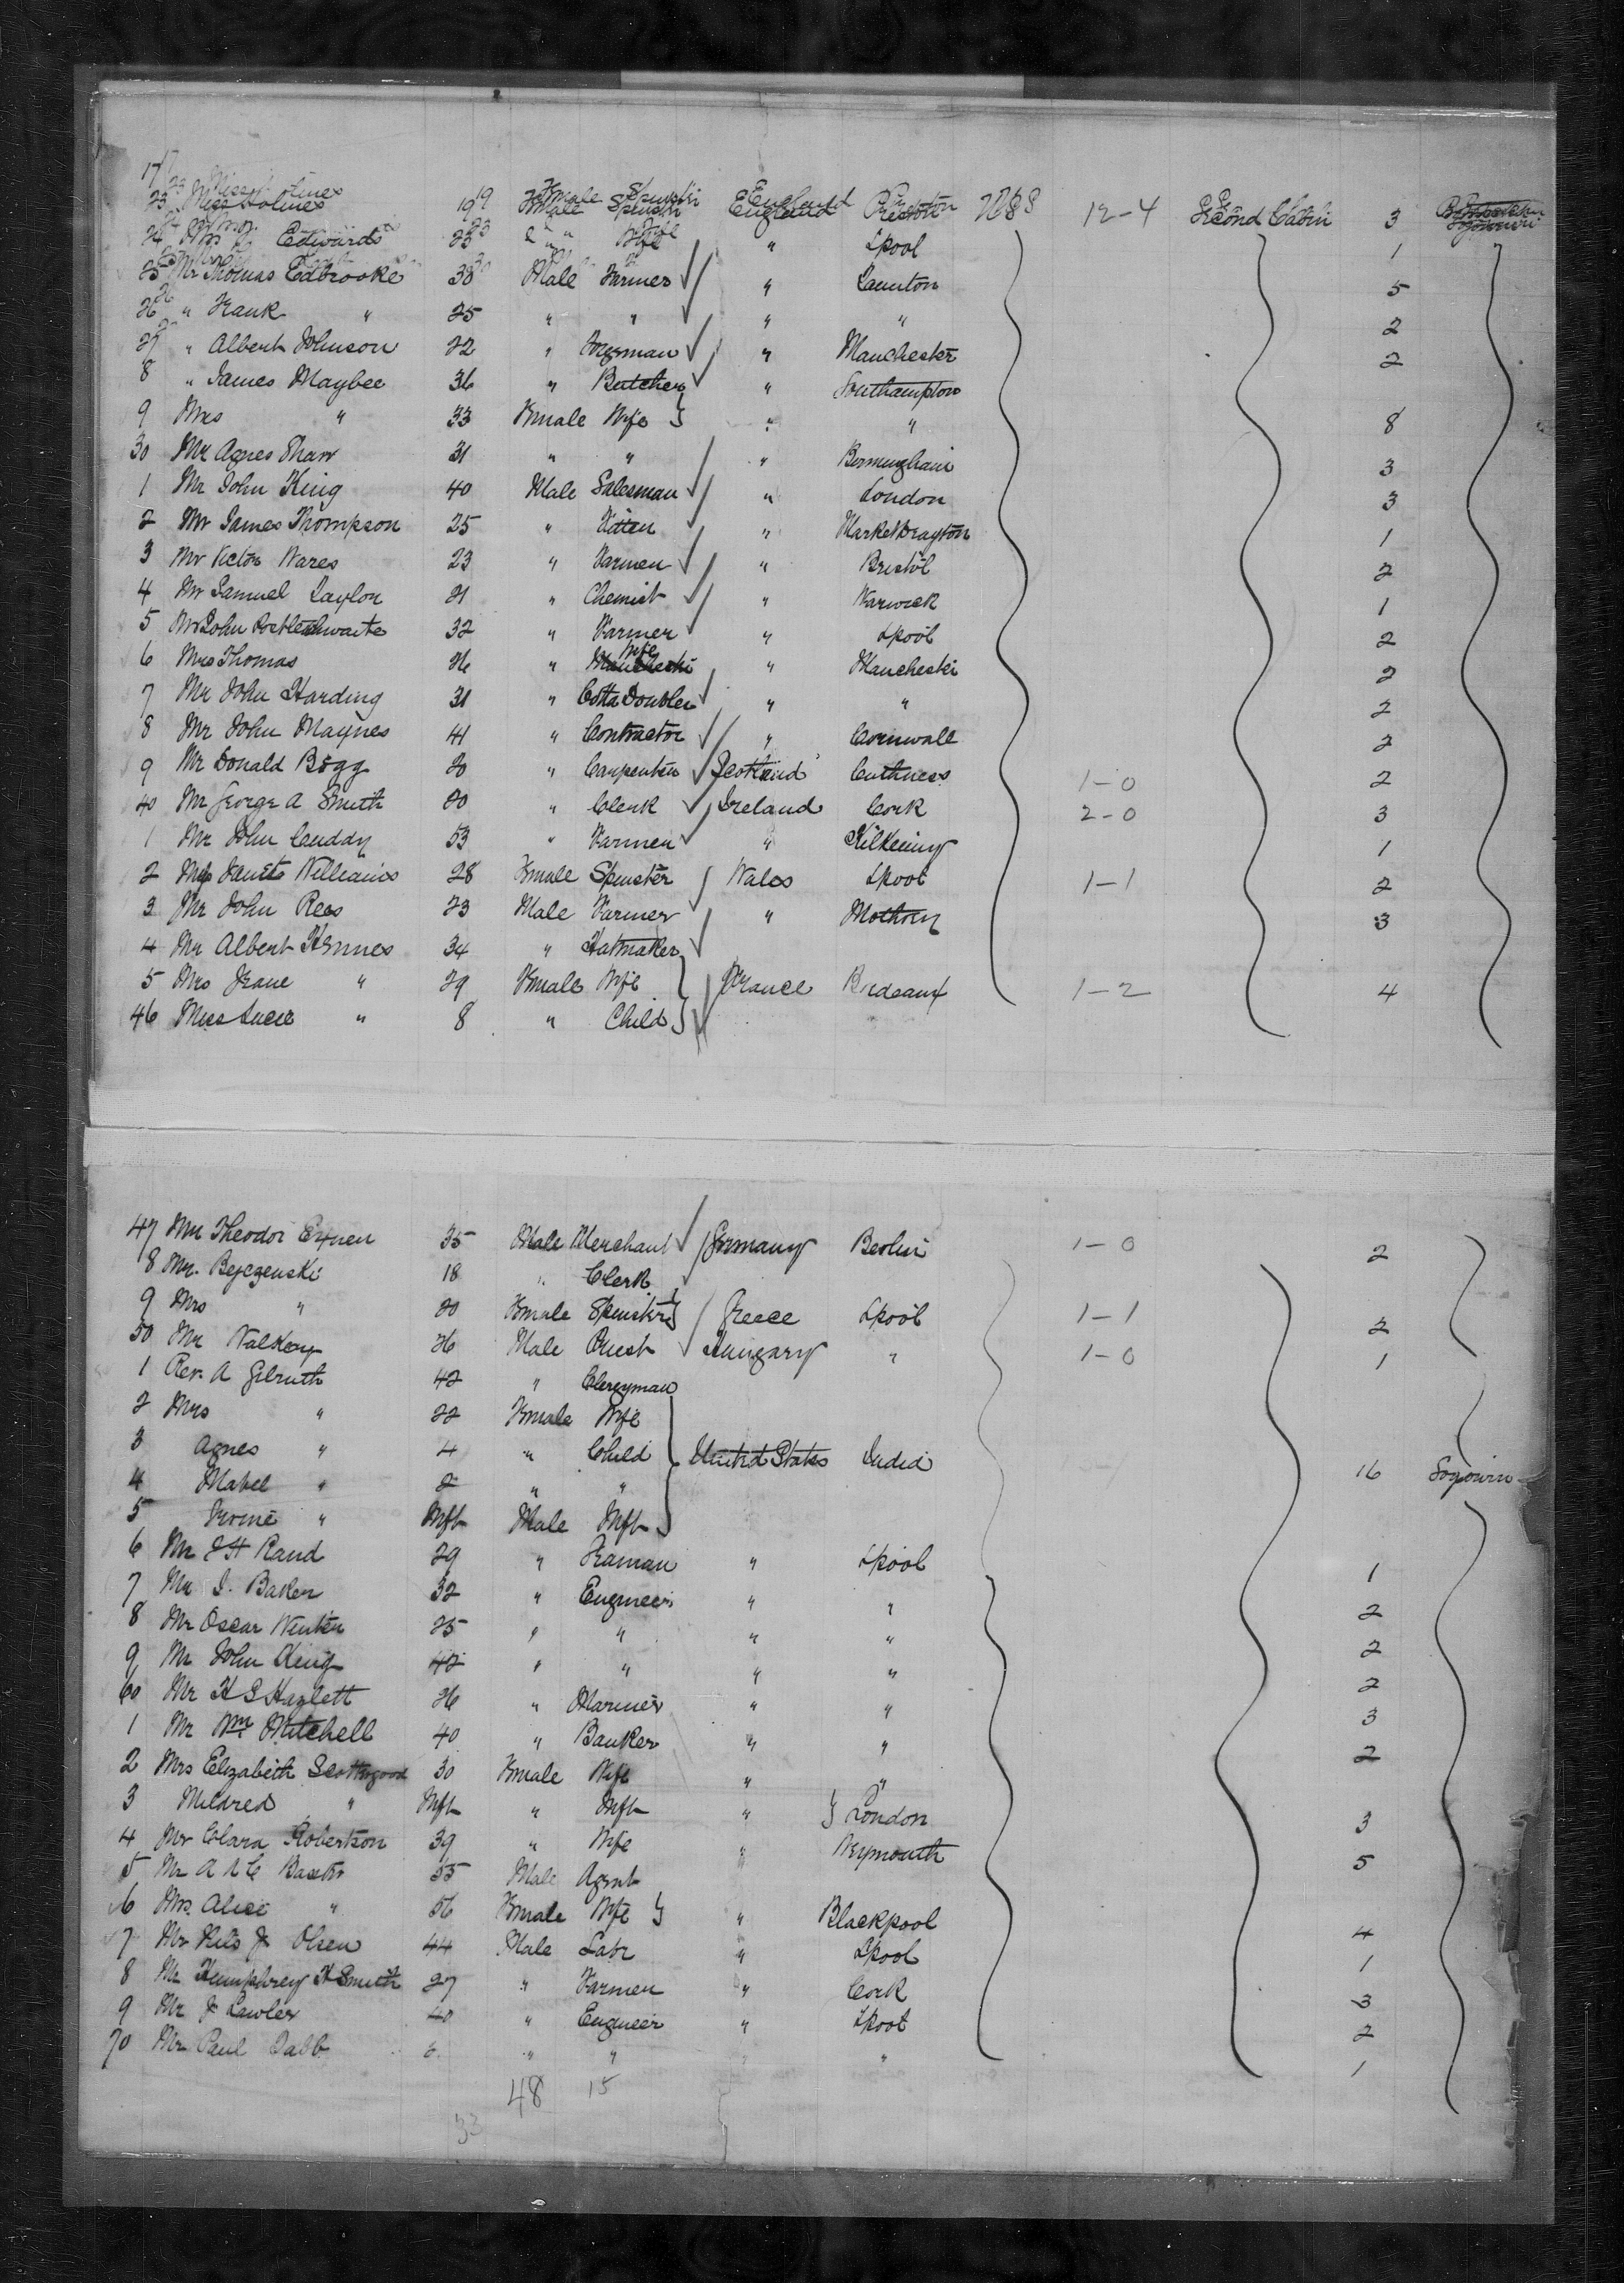 23 Miss Holmes 19 Female Spinster England Preston U.S.S 12-4 Second Cabin 3
24 Mrs Edwards 23 " Wife " Lpool 1
25 Mr Thomas Edbrooke 38 Male Farmer " Taunton 5
26 " Frank " 25 " " " " 2
27 " Albert Johnson 22 " " Manchester 2
8 " James Maybee 36 " Butcher " Southampton
9 Mrs " 33 Female Wife " " 8
30 Mr Agnes Shaw 31 " " " Birmingham 3
1 Mr John King 40 Male Salesman " London 3
2 Mr James Thompson 25 " " Market Drayton 1
3 Mr Victor Wares 23 " Farmer " Bristol 2
4 Mr Samuel Taylor 21 " Chemist " Warwick 1
5 Mr John Postlethwaite 32 " Farmer " Lpool 2
6 Mrs Thomas 26 " Wife " Manchester 2
7 Mr John Harding 31 " Cotton Doubler " " 2
8 Mr John Maynes 41 " Contractor " Cornwall 2
9 Mr Donald Bogg 20 " Carpenter Scotland Cathness 1-0 2
40 Mr George A Smith 20 " Clerk Ireland Cork 2-0 3
1 Mr John Cuddy 53 " Farmer " Kilkenny 1
2 Miss Janet Williams 28 Female Spinster Wales Lpool 1-1 2
3 Mr John Rees 23 Male Farmer " 3
4 Mr Albert 34 " Hatmaker
5 Mrs Jeane " 29 Female Wife France Bordeaux 1-2 4
46 Miss Lucie " 8 " Child
47 Mr Theodor Exner 35 Male Merchant Germany Berlin 1-0 2
8 Mr. Bejczenski 18 " Clerk
9 Mrs " 20 Female Spinster Greece Lpool 1-1 2
50 Mr 26 Male Priest Hungary " 1-0 1
1 Rev. A Gilruth 42 " Clergyman
2 Mrs " 22 Female Wife
3 Agnes " 4 " Child United States India 16
4 Mabel " 2 " "
5 " Inft Male Inft
6 Mr J H Rand 29 " " Lpool 1
7 Mr J. Baker 32 " Engineer " " 2
8 Mr Oscar 25 " " " " 2
9 Mr John King 42 " " " " 2
60 Mr H S Hazlett 26 " Mariner " " 3
1 Mr Wm Mitchell 40 " Banker " " 2
2 Mrs Elizabeth Scattergood 30 Female Wife " "
3 Mildred " Inft " Inft " London 3
4 Mr Clara Robertson 39 " Wife " Weymouth 5
5 Mr A A C Baxter 55 Male Agent
6 Mrs. Alice " 56 Female Wife " Blackpool 4
7 Mr Nils J Olsen 44 Male Labr " Lpool 1
8 Mr Humphrey H Smith 27 " Farmer " Cork 3
9 Mr J Lawler 40 " Engineer " Lpool 2
70 Mr Paul " " " 1
48 15
33